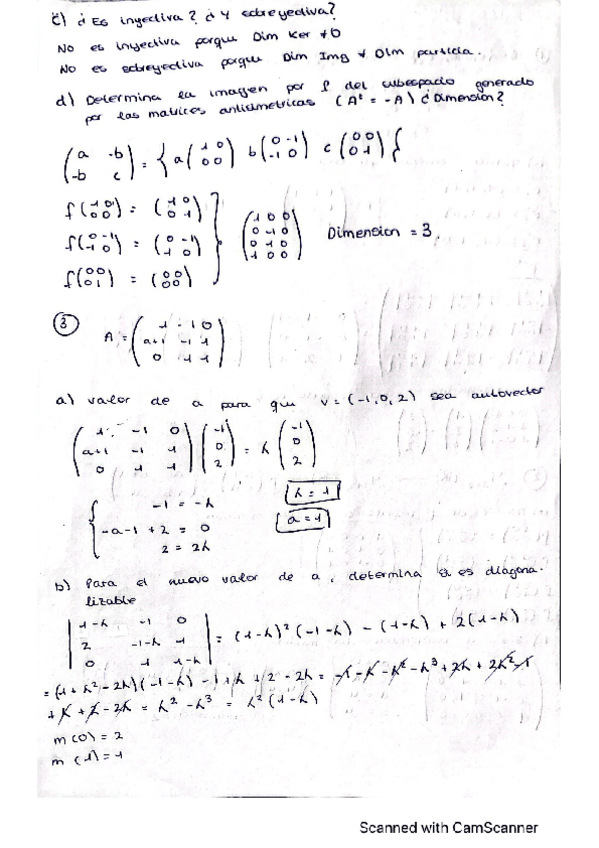 c) ¿ Es inyectiva ? ¿ Y sobreyectiva?
No es inyectiva porque Dim Ker ≠ 0
No es sobreyectiva porque Dim Img ≠ Dim partida.
d) Determina la imagen por f del subespacio generado
por las matrices antisimetricas (Aᵗ = -A) ¿ Dimension?
(a -b; -b c) = { a (1 0; 0 0) b (0 -1; -1 0) c (0 0; 0 1) {
f (1 0; 0 0) = (1 0; 0 1)
f (0 -1; -1 0) = (0 -1; -1 0)
f (0 0; 0 1) = (0 0; 0 0)
(1 0 0; 0 -1 0; 0 -1 0; 1 0 0) Dimension = 3.
③ A = (1 -1 0; a+1 -1 1; 0 1 1)
a) valor de a para que v = (-1, 0, 2) sea autovector
(1 -1 0; a+1 -1 1; 0 1 1) (-1; 0; 2) = λ (-1; 0; 2)
-1 = -λ
-a-1 + 2 = 0
2 = 2λ
λ = 1
a = 1
b) Para el nuevo valor de a, determina si es diagona.
lizable
|1-λ -1 0; 2 -1-λ 1; 0 1 1-λ| = (1-λ)² (-1-λ) - (1-λ) + 2(1-λ)
= (1 + λ² - 2λ) (-1-λ) - 1 + λ + 2 - 2λ = -1 - λ - λ² - λ³ + 2λ + 2λ² - 1
+ λ + 2 - 2λ = λ² - λ³ = λ² (1-λ)
m (0) = 2
m (1) = 1
Scanned with CamScanner